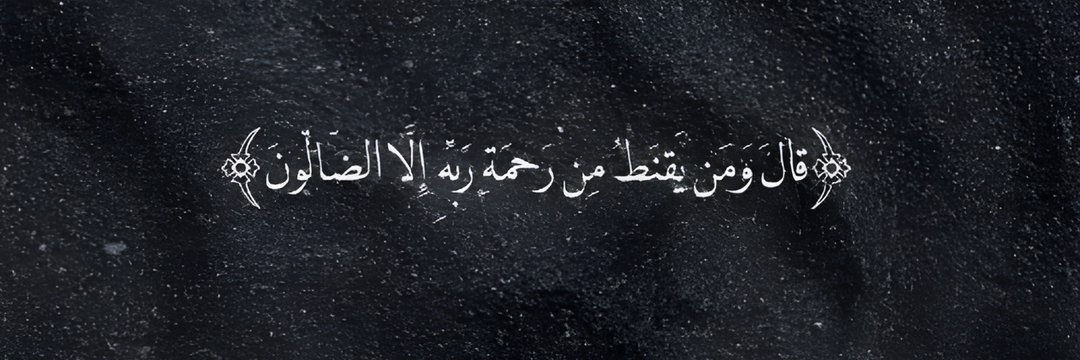 ﴿قَالَ وَمَن يَقنَطُ مِن رَحمَةِ رَبِّهِ إِلَّا الضَالّونَ﴾